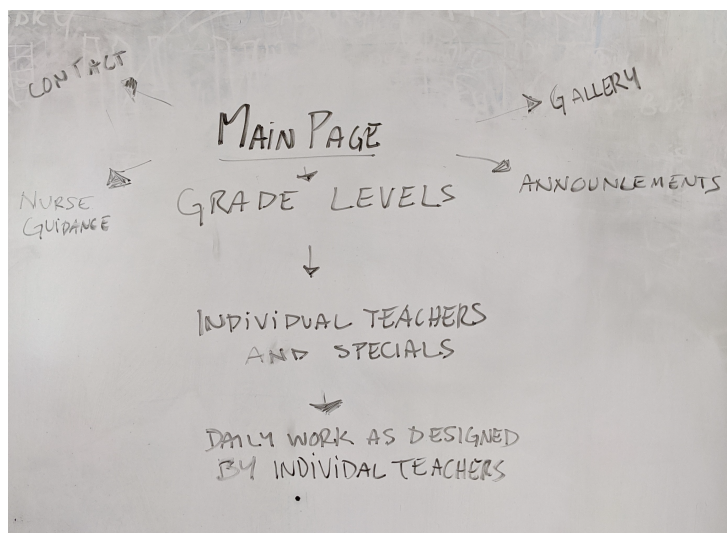 CONTACT
GALLERY
MAIN PAGE
NURSE
GUIDANCE
GRADE LEVELS
ANNOUNLEMENTS
INDIVIDUAL TEACHERS
AND SPECIALS
DAILY WORK AS DESIGNED
BY INDIVIDAL TEACHERS